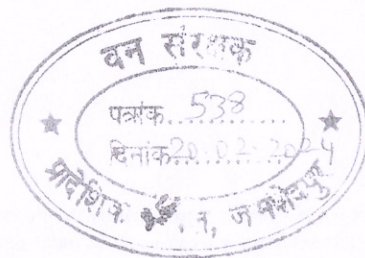 वन संरक्षक
पत्रांक 538
दिनांक 20.02.2024
प्रादेशिक जमशेदपुर